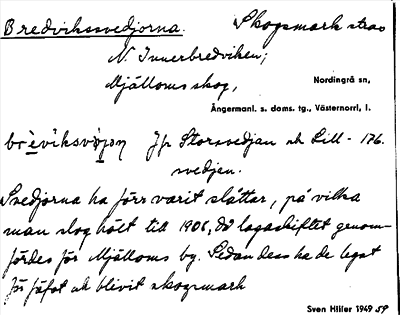 Bredvikssvedjorna. Skogsmark strax
N. Innerbredviken;
Mjälloms skog, Nordingrå sn,
Ångermanl. s. doms. tg., Västernorrl. l.
Jfr Storsvedjan o Lill- 176.
svedjan.
Svedjorna ha förr varit slåttar, på vilka
man slog höet till 1906, då lagaskiftet genom-
fördes för Mjälloms by. Sedan dess ha de legat
för fäfot och blivit skogsmark
Sven Hiller 1949 59